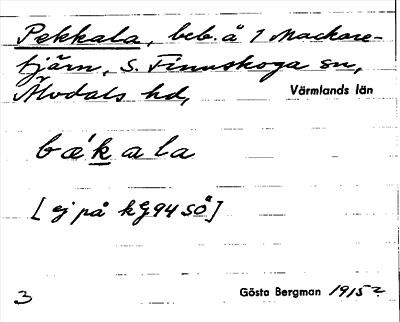 Pekkala, beb. å 1 Mackare-
tjärn, S. Finnskoga sn,
Älvdals hd, Värmlands län
bæ´kala
[ej på kg 94 SÖ]
3 Gösta Bergman 1915?